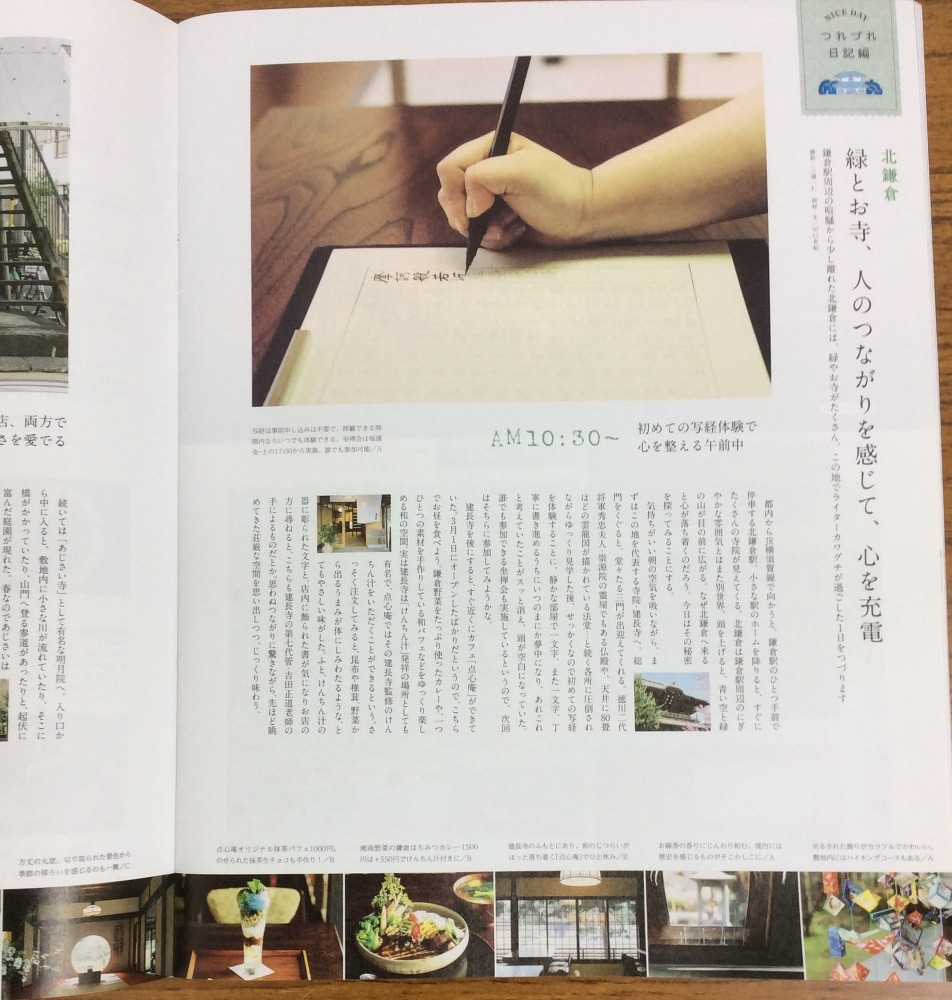 NICE DAY
つれづれ
日記編
北鎌倉
緑とお寺、人のつながりを感じて、心を充電
鎌倉駅周辺の喧騒から少し離れた北鎌倉には、緑やお寺がたくさん。この地でライターカワグチが過ごした1日をつづります
摩訶般若波
写経は事前申し込みは不要で、拝観できる時
間内ならいつでも体験できる。坐禅会は毎週
金・土の17:00から実施。誰でも参加可能／A
AM10:30~
初めての写経体験で
心を整える午前中
都内からJR横須賀線で向かうと、鎌倉駅のひとつ手前で
停車する北鎌倉駅。小さな駅のホームを降りると、すぐに
たくさんの寺院が見えてくる。北鎌倉は鎌倉駅周辺のにぎ
やかな雰囲気とはまた別世界。頭を上げると、青い空と緑
の山が目の前に広がる。なぜ北鎌倉へ来る
と心が落ち着くのだろう。今日はその秘密
を探ってみることにする。
気持ちがいい朝の空気を吸いながら、ま
ずはこの地を代表する寺院「建長寺」へ。総
門をくぐると、堂々たる三門が出迎えてくれる。徳川二代
将軍秀忠夫人 崇源院の霊屋でもある仏殿や、天井に80畳
ほどの雲龍図が描かれている法堂…と続く各所に圧倒され
ながらゆっくり見学した後、せっかくなので初めての写経
を体験することに。静かな部屋で一文字、また一文字、丁
寧に書き進めるうちにいつのまにか夢中になり、あれこれ
と考えていたことがスッと消え、頭が空白になっていた。
誰でも参加できる坐禅会も実施しているというので、次回
はそちらに参加してみようかな。
建長寺を後にすると、すぐ近くにカフェ「点心庵」ができて
いた。3月1日にオープンしたばかりだというので、こちら
でお昼を食べよう。鎌倉野菜をたっぷり使ったカレーや、一つ
ひとつの素材を手作りしている和パフェなどをゆっくり楽し
める和の空間。実は建長寺は「けんちん汁」発祥の場所としても
有名で、点心庵ではその建長寺監修のけん
ちん汁をいただくことができるという。さ
っそく注文してみると、昆布や椎茸、野菜か
ら出るうまみが体にしみわたるような、と
てもやさしい味がした。ふと、けんちん汁の
器に彫られた文字と、店内に飾られた書が気になりお店の
方に尋ねると、こちらも建長寺の第七代管 吉田正道老師の
手によるものだとか。思わぬつながりに驚きながら、先ほど眺
めてきた荘厳な空間を思い出しつつ、じっくり味わう。
吊るされた飾りがカラフルでかわいい。
敷地内にはハイキングコースもある／A
お線香の香りにじんわり和む。境内には
歴史を感じるものがそこかしこに／A
建長寺のふもとにあり、和のしつらいが
ほっと落ち着く「点心庵」でひと休み／B
湘南野菜の鎌倉はちみつカレー1500
円は+550円でけんちん汁付きに／B
点心庵オリジナル抹茶パフェ1000円。
のせられた抹茶生チョコも手作り！／B
店、両方で
さを愛でる
続いては「あじさい寺」として有名な明月院へ。入り口か
ら中に入ると、敷地内に小さな川が流れていたり、そこに
橋がかかっていたり、山門へ登る参道があったりと、起伏に
富んだ庭園が現れた。春なのであじさいは
方丈の丸窓。切り取られた景色から
季節の移ろいを感じるのも一興／C